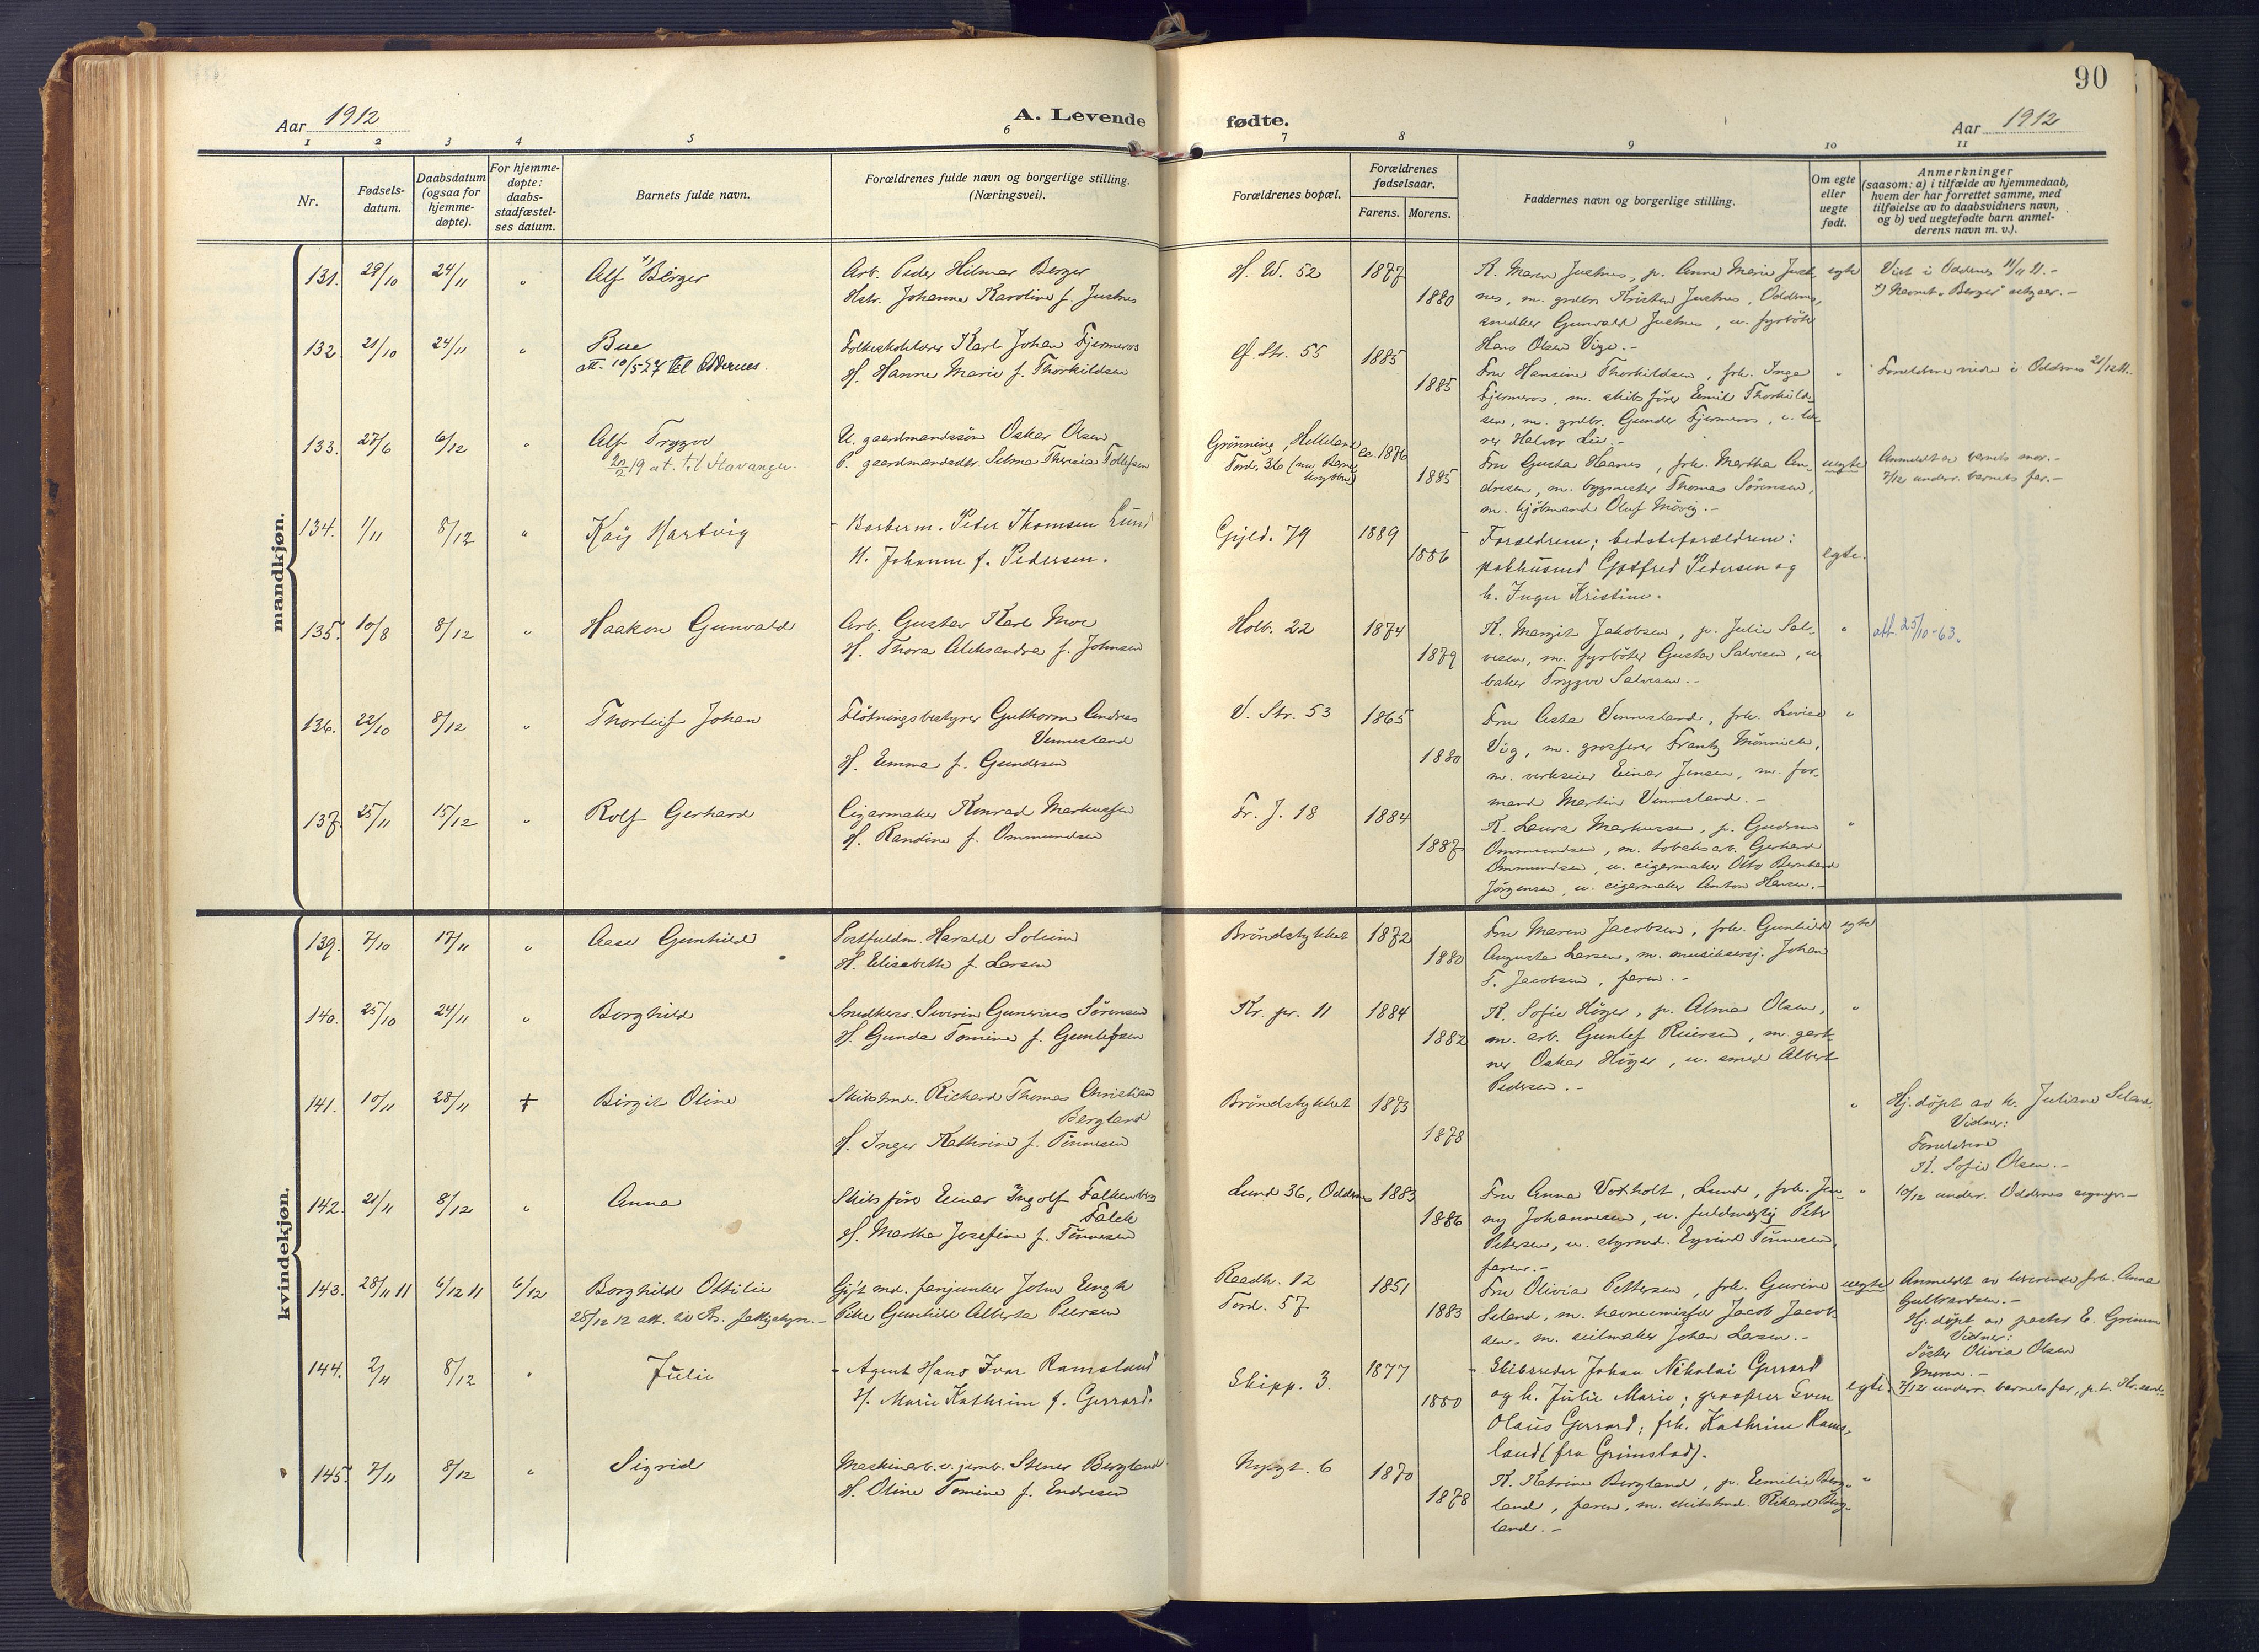 90
Aar 1912
A. Levende fødte.
Aar 1912
1 2 3 4 5 6 7 8 9 10 11
Nr.
Fødsels-
datum.
Daabsdatum
(ogsaa for
hjemme-
døpte).
For hjemme-
døpte:
daabs-
stadfæstel-
ses datum.
Barnets fulde navn.
Forældrenes fulde navn og borgerlige stilling.
(Næringsvei).
Forældrenes bopæl.
Forældrenes
fødselsaar.
Farens. Morens.
Faddernes navn og borgerlige stilling.
Om egte
eller
uegte
født.
Anmerkninger
(saasom: a) i tilfælde av hjemmedaab,
hvem der har forrettet samme, med
tilføielse av to daabsvidners navn,
og b) ved uegtefødte barn anmel-
derens navn m. v.).
mandkjøn.
131. 29/10 24/11 " Alf *) Birger
Arb. Peder Hilmar Berger
Hstr. Johanne Karoline f. Justnes
H. W. 52 1877
1880
K. Maren Justnes, p. Anne Marie Just-
nes, m. grdbr. Kristen Justnes, Oddernes,
snedker Gunvald Justnes, u. fyrbøter
Hans Olsen Vige. -
egte
Viet i Oddernes 11/11 11. -
*) Navnet "Berger" utgaar. -
132. 21/10 24/11 " Bue
att. 10/5-27 til Oddernes.
Folkeskolelærer Karl Johan Fjermeros
H. Hanne Marie f. Thorkildsen
Ø. Str. 55 1885
1885
Fru Hansine Thorkildsen, frk. Inga
Fjermeros, m. skibsfører Emil Thorkild-
sen, m. grdbr. Gunder Fjermeros, u. læ-
rer Halvor Lie. -
"
Forældrene viede i Oddernes 21/12 11.
133. 27/6 6/12 " Alf Trygve
20/2 19 at. til Stavanger.
U. gaardmandssøn Oskar Olsen
P. gaardmandsdtr. Selma Theresia Tollefsen
Grønning, Helleland
Tord. 36 (nu Rane
ca. 1876
1885
Fru Gusta Haanes, frk. Martha An-
dresen, m. bygmester Thomas Sørensen,
m. kjøbmand Oluf Møvig. -
uegte
Anmeldt av barnets mor. -
7/12 underr. barnets far. -
134. 1/11 8/12 " Kaÿ Hartvig
- Barberm. Peter Thomsen Lund
H. Johanne f. Pedersen.
Gyld. 79 1889
1886
- Forældrene; bedsteforældrene:
pakhusmd Gotfred Pedersen og
h. Inger Kristine.
egte.
135. 10/8 8/12 " Haakon Gunvald
Arb. Gustav Karl Moe
H. Thora Aleksandra f. Johnsen
Holb. 22 1874
1879
K. Margit Jakobsen, p. Julie Sal-
vesen, m. fyrbøter Gustav Salvesen, u.
baker Trygve Salvesen. -
"
att. 25/10-63.
136. 22/10 8/12 " Thorleif Johan
Fløtningsbestyrer Guthorm Andreas
Vennesland
H. Emma f. Gundersen
V. Str. 53 1865
1880
Fru Asta Vennesland, frk. Lovise
Vig, m. grosserer Frantz Mønnich,
m. verkseier Einar Jensen, m. for-
mand Martin Vennesland. -
"
137. 25/11 15/12 " Rolf Gerhard
Cigarmaker Konrad Markussen
H. Randine f. Ommundsen
Fr. J. 18 1884
1887
K. Laura Markussen, p. Gudrun
Ommundsen, m. tobaksarb. Gerhard
Ommundsen, u. cigarmaker Otto Bernhard
Jørgensen, u. cigarmaker Anton Hansen. -
"
kvindekjøn.
139. 7/10 17/11 " Aase Gunhild
Postfuldm. Harald Solum
H. Elisabeth f. Larsen
Brøndstykket 1872
1880
Fru Maren Jacobsen, frk. Gunhild
Augusta Larsen, m. musiksersj. Johan
F. Jacobsen, faren. -
egte
140. 25/10 24/11 " Borghild
Snedkersv. Severin Gunerius Sørensen
H. Gunda Tomine f. Gunlefsen
Kr. pr. 11 1884
1882
K. Sofie Høyer, p. Alma Olsen,
m. arb. Gunlef Reiersen, m. gart-
ner Oskar Høyer, u. smed Albert
Pedersen. -
"
141. 10/11 28/11 + Birgit Oline
Skibstmd. Richard Thomas Christian
Bergland
H. Inger Kathrine f. Tønnesen
Brøndstykket 1873
1878
"
Hj.døpt av k. Juliane Seland.
Vidner:
Forældrene
K. Sofie Olsen. -
142. 21/11 8/12 " Anna
Skibsfører Einar Ingolf Falkenberg
Falck
H. Martha Josefine f. Tønnesen
Lund 36, Oddernes 1883
1886
Fru Anna Voxholt, Lund, frk. Jen-
ny Johannesen, u. fuldmægtig Peter
Petersen, u. styrmd. Eyvind Tønnesen,
faren. -
"
10/12 underr. Oddernes sognepr. -
143. 28/11 11 6/12 11 6/12 Borghild Ottilie
28/12 12 att. til Kr. fattigstyre. -
Gift md. fanejunker John Lingh
Pike Gunhild Alberta Peersen
Raadh. 12
Tord. 57
1851
1883
Fru Olivia Pettersen, frk. Gurine
Seland, m. havnemester Jacob Jacob-
sen, m. seilmaker Johan Larsen. -
uegte
Anmeldt av frk. Anna
Gulbrandsen. -
Hj.døpt av pastor E. Grimm
Vidner:
Søster Olivia Olsen
Moren. -
7/12 underr. barnets far, p.t. Kr.sand.
144. 2/11 8/12 " Julie
- Agent Hans Ivar Ramsland
H. Marie Kathrine f. Gerrard.
Skipp. 3. 1877
1880
- Skibsreder Johan Nikolai Gerrard
og h. Julie Marie; grosserer Sven
Olaus Gerrard; frk. Kathrine Rams-
land (fra Grimstad).
egte.
145. 7/11 8/12 " Sigrid
Maskinarb. v. jernb. Stener Bergland
H. Oline Tomine f. Endresen
Ny.gt. 6 1870
1878
K. Katrine Bergland, p. Emilie Berg-
land, faren, m. skibstmd. Rikard Berg-
land. -
"